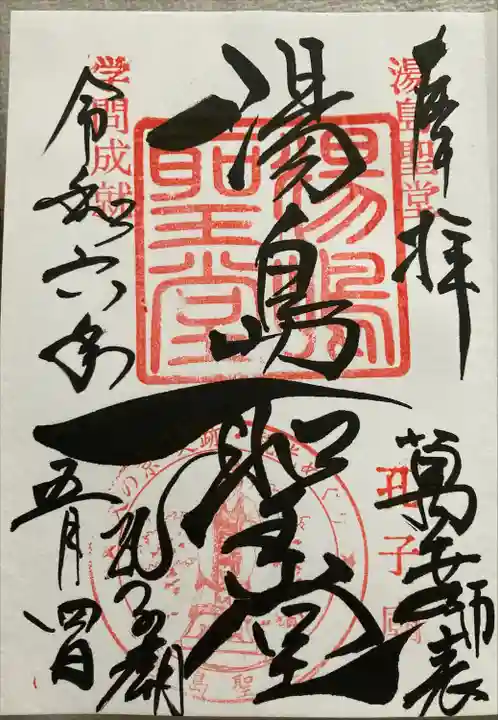 奉拝
湯島聖堂
萬世師表
湯島聖堂
湯島聖堂
孔子廟
学問成就
令和六年
五月四日